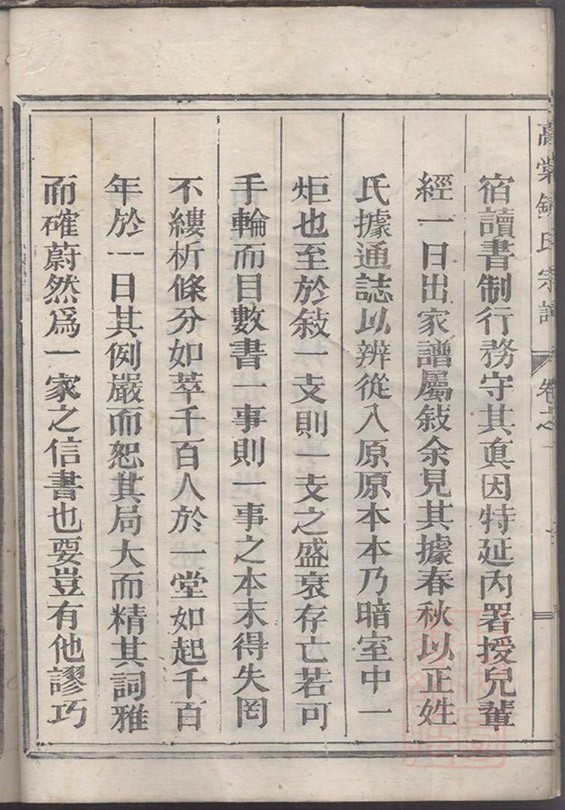 宿讀書制行務守其眞因特延內署授兒輩
經一日出家譜屬敍余見其據春秋以正姓
氏據通誌以辨從入原原本本乃暗室中一
炬也至於敍一支則一支之盛衰存亡若可
手輪而目數書一事則一事之本末得失罔
不縷析條分如萃千百人於一堂如起千百
年於一日其例嚴而恕其局大而精其詞雅
而確蔚然爲一家之信書也要豈有他謬巧